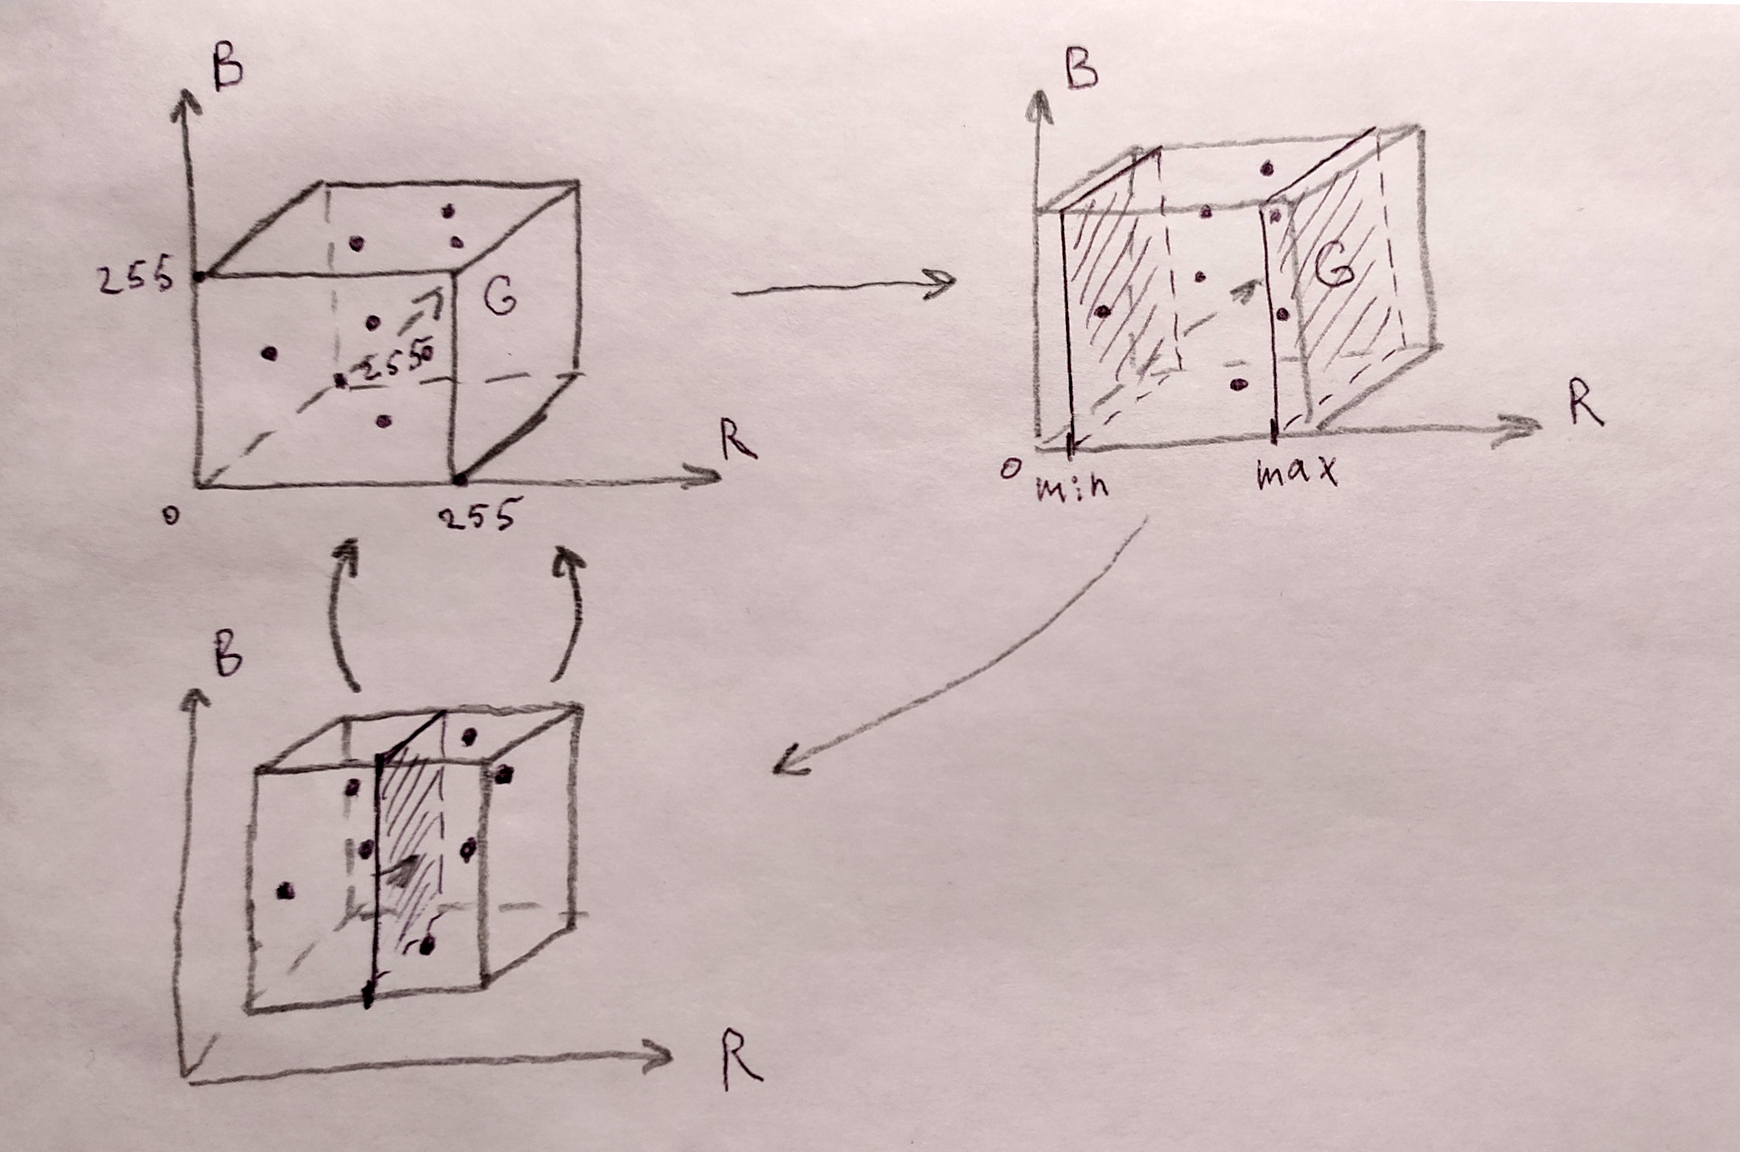 B
255
G
2550
R
0
255
B
G
R
0
min
max
B
R